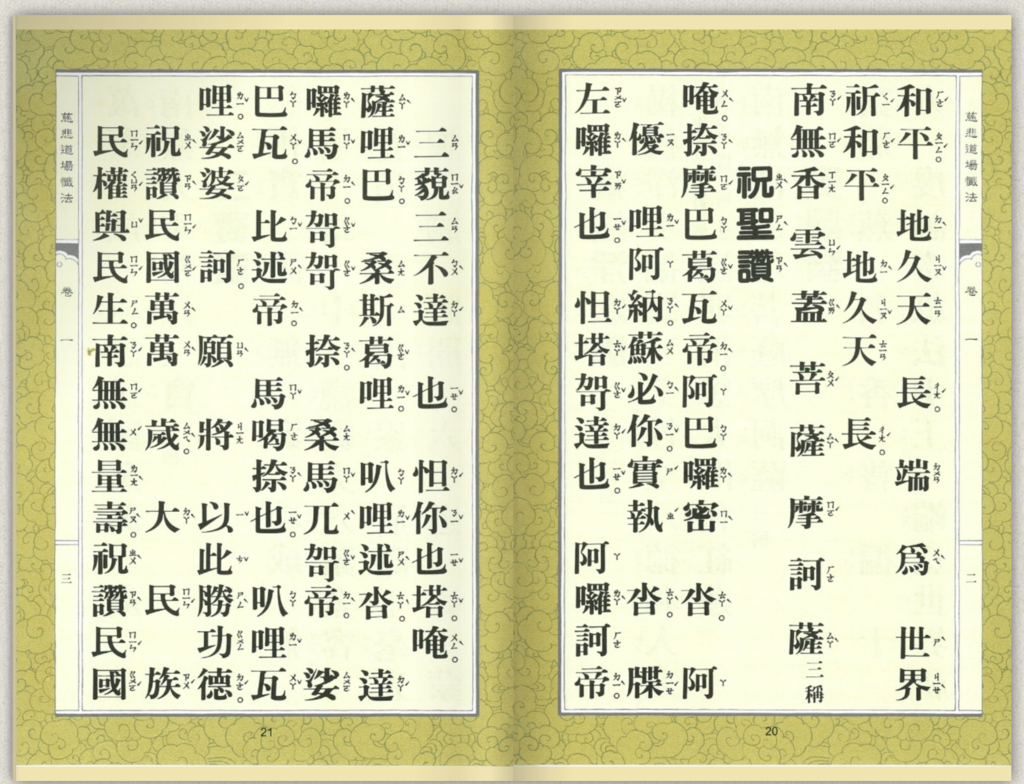 慈悲道場懺法 卷一 二
和平。地久天長。端為世界
祈和平。地久天長。
南無香雲蓋菩薩摩訶薩三稱
祝聖讚
唵捺摩巴葛瓦帝。阿巴囉密沓。阿
優哩阿納。蘇必你實執沓牒
左囉宰也。怛塔哿達也。阿囉訶帝。
20
三藐三不達也。怛你也塔。唵。
薩哩巴。桑斯葛哩。叭哩述沓。達
囉馬帝。哿哿捺。桑馬兀哿帝。娑
巴瓦。比述帝。馬喝捺也。叭哩瓦
哩。娑婆訶。願將以此勝功德。
祝讚民國萬萬歲。大民族
民權與民生。南無無量壽。祝讚民國
慈悲道場懺法 卷一 三
21